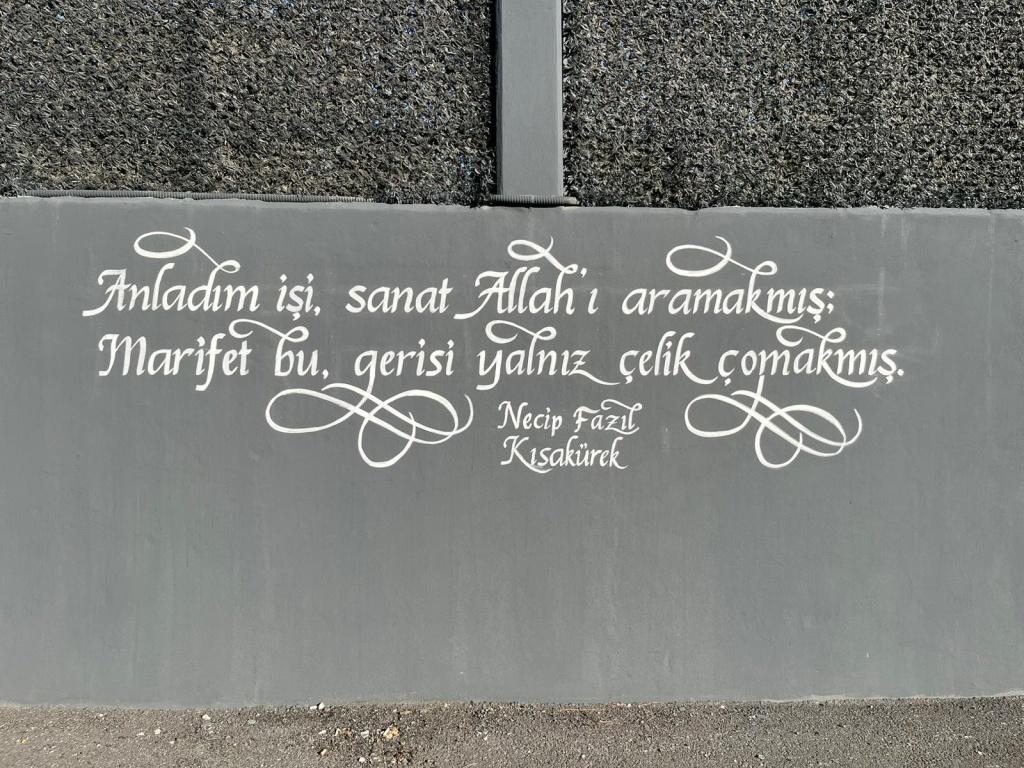 Anladım işi, sanat Allah'ı aramakmış;
Marifet bu, gerisi yalnız çelik çomakmış.
Necip Fazıl
Kısakürek